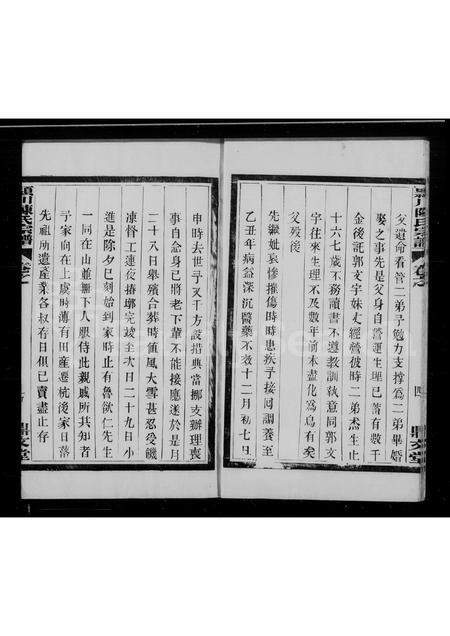 父遺命看管二弟予勉力支撐為二弟畢婚
娶之事先是父身自營運生理已蓄有數千
金後託郭文宇妹丈經營彼時二弟炁生止
十六七歲不務讀書不遵教訓執意同郭文
宇往來生理不及數年前本盡化為烏有矣
父歿後
先繼妣哀慘摧傷時時患疾予接回調養至
乙丑年病益深沉醫藥不效十二月初七日
潁川陳氏宗譜
四
鼎文堂
申時去世予又千方設措典當挪支辦理喪
事自念身已將老下輩不能接應遂於是月
二十八日舉殯合葬時值風大雪甚忍受饑
凍督工連夜搭廓完竣至次日二十九日小
進是除夕巳刻始到家時止有魯欲仁先生
一同在山並無下人服侍此親戚所其知者
予家向在上虞時薄有田產遷杭後家日落
先祖所遺產業各叔存日俱已賣盡止存
潁川陳氏宗譜
鼎文堂